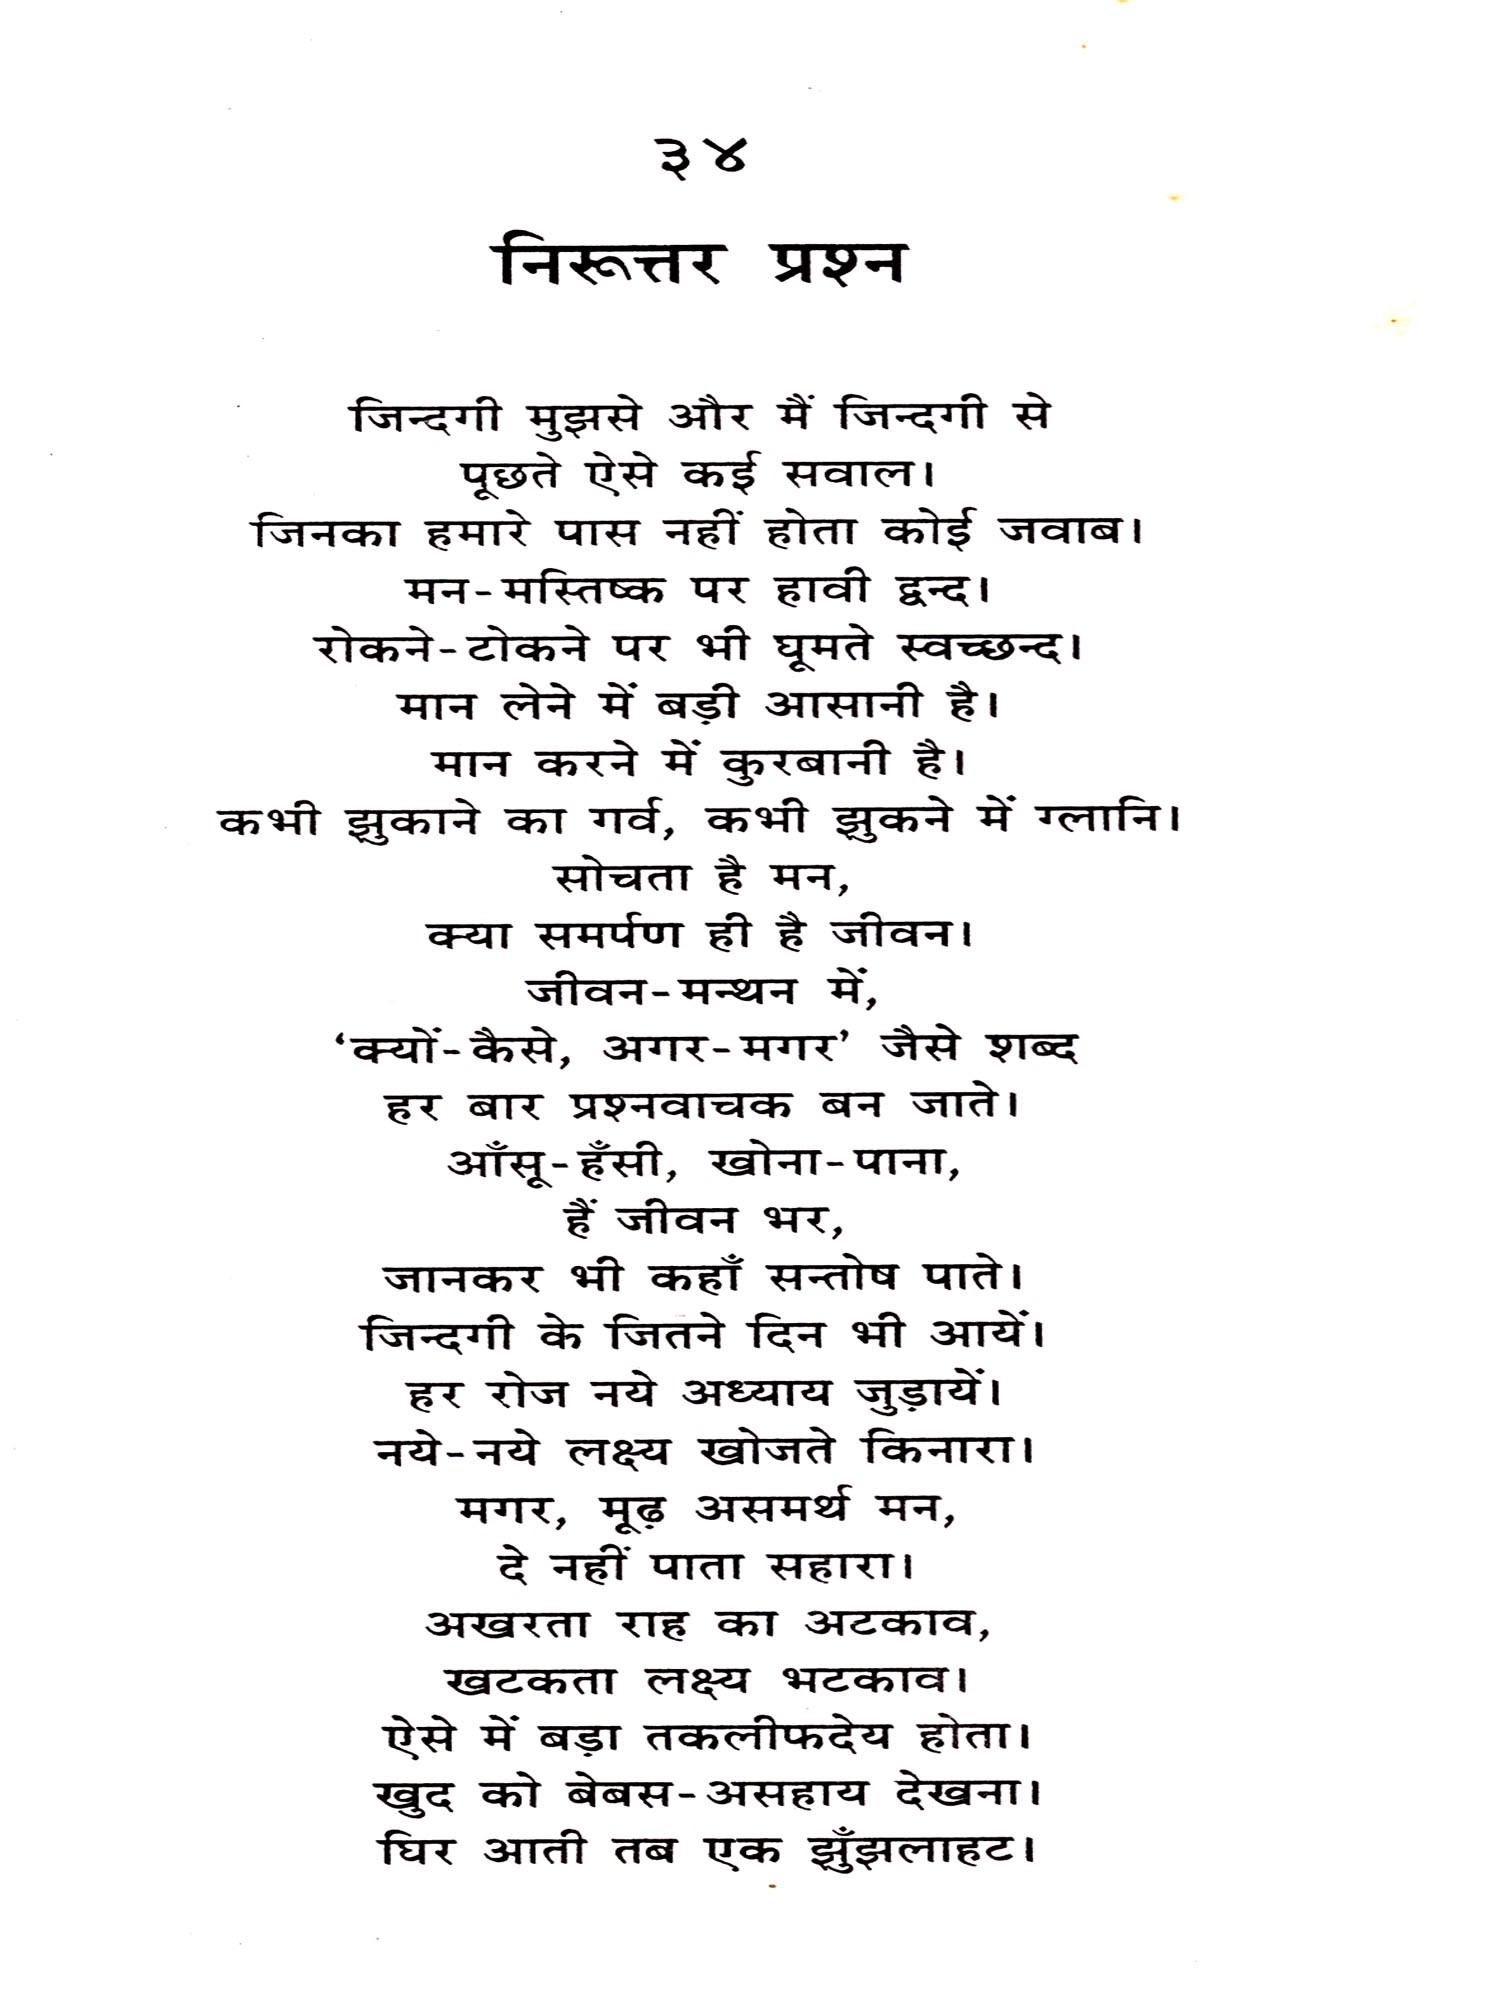 ३४
निरूत्तर प्रश्न
जिन्दगी मुझसे और मैं जिन्दगी से
पूछते ऐसे कई सवाल।
जिनका हमारे पास नहीं होता कोई जवाब।
मन-मस्तिष्क पर हावी द्वन्द।
रोकने-टोकने पर भी घूमते स्वच्छन्द।
मान लेने में बड़ी आसानी है।
मान करने में कुरबानी है।
कभी झुकाने का गर्व, कभी झुकने में ग्लानि।
सोचता है मन,
क्या समर्पण ही है जीवन।
जीवन-मन्थन में,
‘क्यों-कैसे, अगर-मगर’ जैसे शब्द
हर बार प्रश्नवाचक बन जाते।
आँसू-हँसी, खोना-पाना,
हैं जीवन भर,
जानकर भी कहाँ सन्तोष पाते।
जिन्दगी के जितने दिन भी आयें।
हर रोज नये अध्याय जुड़ायें।
नये-नये लक्ष्य खोजते किनारा।
मगर, मूढ़ असमर्थ मन,
दे नहीं पाता सहारा।
अखरता राह का अटकाव,
खटकता लक्ष्य भटकाव।
ऐसे में बड़ा तकलीफदेय होता।
खुद को बेबस-असहाय देखना।
घिर आती तब एक झुँझलाहट।